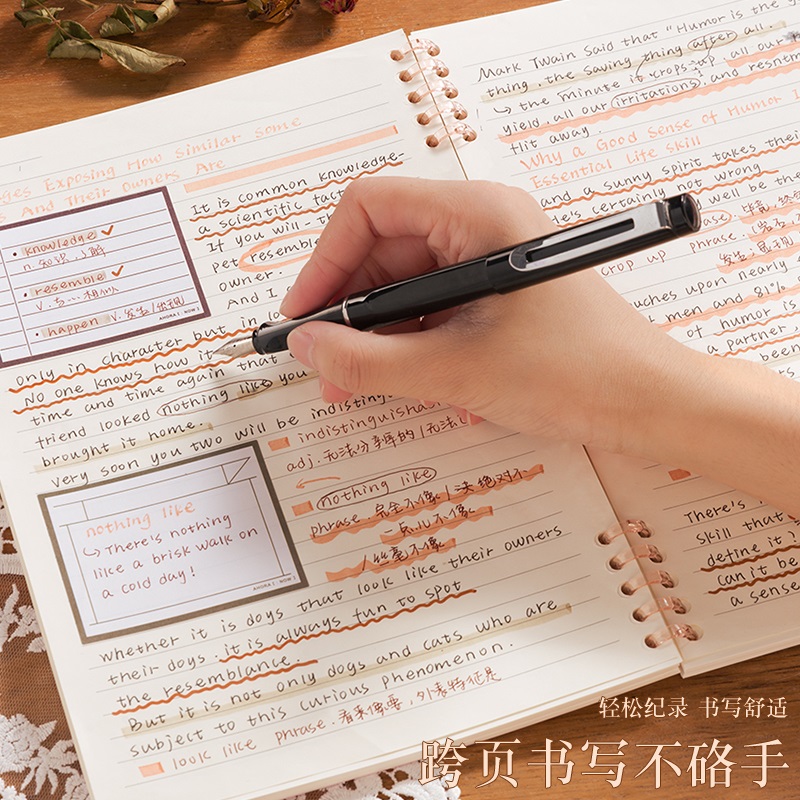 ges Exposing How Similar Some
s And Their Owners Are
knowledge
n. 知识,了解
resemble
v. 与…相似
happen v. 发生/出现
AHORA | NOW 2
It is common knowledge
a scientific fact
If you will
pet resemble
owner.
And I
only in character but in
No one knows how it
time and time again that
friend looked nothing like you
brought it home.
very soon you two will be
indistinguishab
adj. 无法分辨的/无法
nothing like
phrase. 完全不像/决绝对不
一点儿不像
/丝毫不像
nothing like
There's nothing
like a brisk walk on
a cold day!
AHORA | NOW 2
whether it is dogs that look like their owners
their dogs. it is always fun to spot
the resemblance.
But it is not only dogs and cats who are
subject to this curious phenomenon.
look like phrase. 看来像要,外表特征是
Mark Twain said that "Humor is the
thing. the saving thing after all.
the minute it crops up all our
yield, all our irritations, and resntm
flit away.
Why a Good Sense of Humor I
Essential Life Skill
and a sunny spirit takes their
e's certainly not wrong
well be the
crop up phrase.
发生,出现
ouches upon nearly
men and 81%
of humor is
a partner,
been
There's
skill that
define it?
can it be
a sense
轻松纪录 书写舒适
跨页书写不硌手